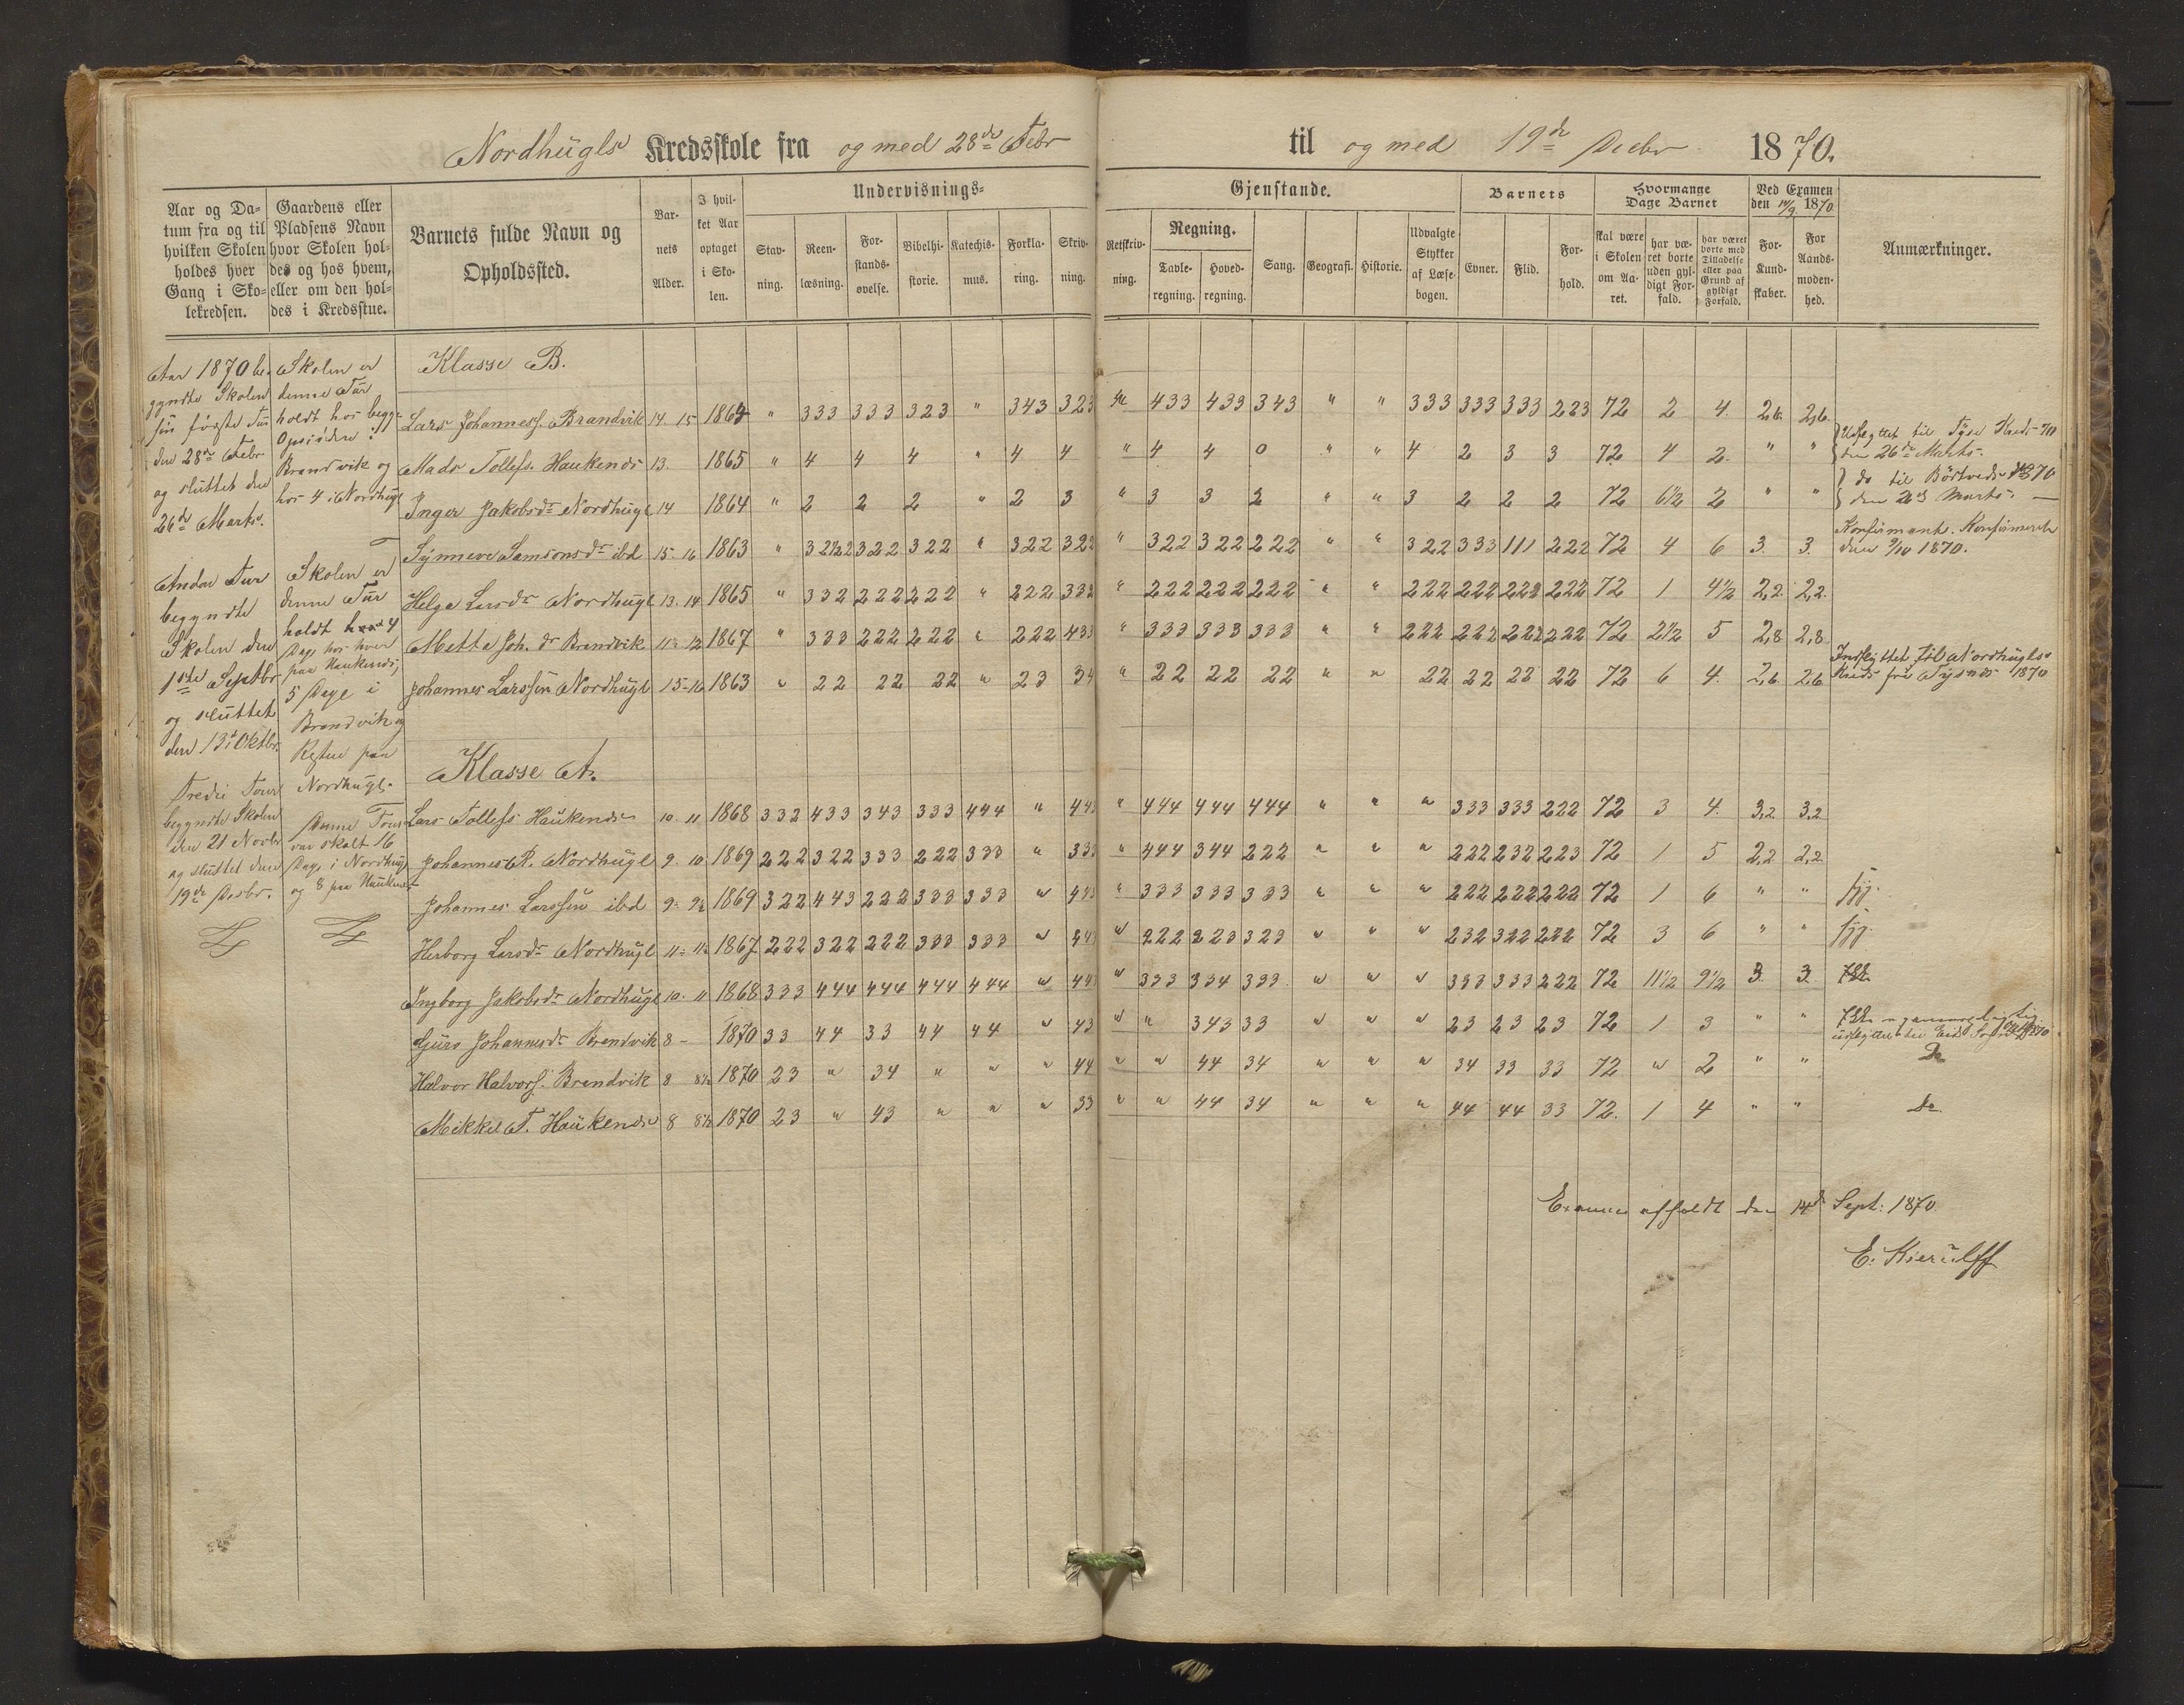 Nordhugls Kredsskole fra og med 28de Febr til og med 19de Decbr 1870.
Aar og Datum fra og til hvilken Skolen holdes hver Gang i Skolekredsen.
Gaardens eller Pladsens Navn hvor Skolen holdes og hos hvem, eller om den holdes i Kredsstue.
Barnets fulde Navn og Opholdssted.
Barnets Alder.
I hvilket Aar optaget i Skolen.
Undervisnings-
Stavning. Reenlæsning. Forstandsøvelse. Bibelhistorie. Katechismus. Forklaring. Skrivning.
Gjenstande.
Retskrivning. Regning. Tavleregning. Hovedregning. Sang. Geografi. Historie. Udvalgte Stykker af Læsebogen.
Barnets
Evner. Flid. Forhold.
Hvormange Dage Barnet
skal være i Skolen om Aaret. har været borte uden gyldigt Forfald. har været borte med Tilladelse eller paa Grund af gyldigt Forfald.
Ved Examen den 14/9 1870
For Kundskaber. For Aandsmodenhed.
Anmærkninger.
Aar 1870 be-
gyndte Skolen
sin første Tur
den 28de Febr
og sluttet den
26de Marts.
Anden Tur
begyndte
Skolen den
1ste Septbr
og sluttet
den 13de Oktbr.
Tredie Tour
begyndte Skolen
den 21 Novbr
og sluttet den
19de Decbr.
Skolen er
denne Tur
holdt hos begge
Opsidere i
Brandvik og
hos 4 i Nordhugl
Skolen er
denne Tur
holdt 4
Dage hos hver
paa Haukends,
5 Dage i
Brandvik og
Resten paa
Nordhugl.
Denne Tour
var skolt 16
Dage i Nordhugl
og 8 paa Haukends
Klasse B.
Lars Johanness. Brandvik 14. 15 1864 " 333 333 323 " 343 323 433 433 343 " " 333 333 333 223 72 2 4. 2,6 2,6
Mads Tollefs. Haukends 13. 1865 " 4 4 4 " 4 4 " 4 4 0 " " 4 2 3 3 72 4 2. " " Udflyttet til Kreds den 26de Marts.
Inger Jakobsdr Nordhugl 14 1864 " 2 2 2 " 2 3 " 3 3 2 " " 3 2 2 2 72 6½ 2 " " do til den Marts.
Synneve Samsonsdr ibd 15-16 1863 " 3 2½ 2 322 322 " 322 322 " 322 322 222 " " 322 333 111 222 72 4 6 3. 3. Konfirmant. Konfirmeret den 9/10 1870.
Helge Larsdr Nordhugl 13. 14 1865 " 332 222 222 " 222 332 " 222 222 222 " " 222 222 222 222 72 1 4½ 2,2 2,2.
Mette Joh.dr Brandvik 11-12 1867 " 333 222 222 " 222 433 " 333 333 333 " " 222 222 222 222 72 2½ 5 2,8 2,8
Johannes Larssen Nordhugl 15-16 1863 " 22 22 22 " 23 34 " 22 22 22 " " 22 22 22 22 72 6 4. 2,6 2,6 Indflyttet til Nordhugls Kreds fra Tysnæs 1870
Klasse A.
Lars Tollefs Haukends 10. 11 1868 332 433 343 333 444 " 443 " 444 444 444 " " " 333 333 222 72 3 4. 3,2 3,2
Johannes R. Nordhugl 9. 10 1869 222 322 333 222 333 " 333 " 444 344 222 " " " 222 232 223 72 1 5 2,2 2,2
Johannes Larssen ibd 9- 9½ 1869 322 443 222 333 333 " 443 " 333 333 333 " " " 222 222 222 72 1 6 " "
Herborg Larsdr Nordhugl 11- 11½ 1867 222 322 222 333 333 " " 222 223 323 " " " 232 322 222 72 3 6 " "
Ingborg Jakobsdr Nordhugl 10. 11 1868 333 444 444 444 444 " 443 " 333 334 333 " " " 333 333 222 72 11½ 9½ 3. 3.
Guro Johannesdr Brandvik 8 - 1870 33 44 33 44 44 " 43 " " 343 33 " " " 23 23 23 72 1 3 " "
Halvor Halvors. Brandvik 8 8½ 1870 23 " 34 " " " 44 " " 44 34 " " " 34 33 33 72 " 2 " " Do
Mikkel T. Haukends 8 8½ 1870 23 " 43 " " " 33 " " 44 34 " " " 44 44 33 72. 1 4 " " Do.
Examen afholdt den 14de Sept: 1870.
E. Kierulff